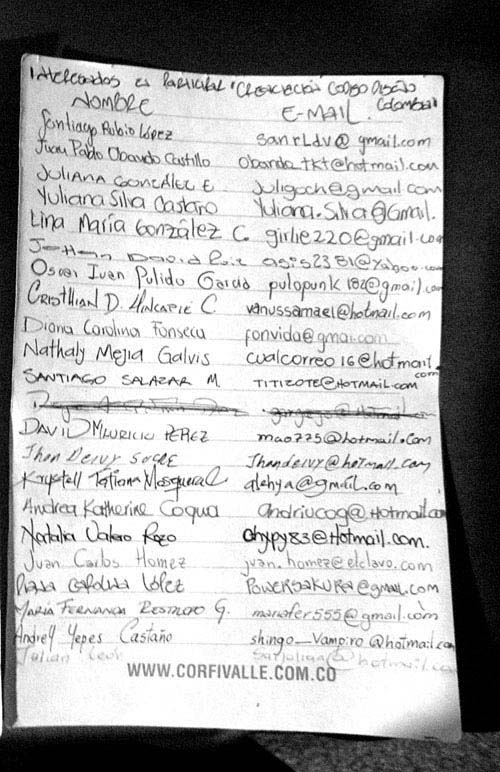 Interesados en participar
NOMBRE E-MAIL Colombia
Santiago Rubio López sanrldv@gmail.com
Juan Pablo Obando Castillo obando_tkt@hotmail.com
JULIANA GONZÁLEZ E. juligoch@gmail.com
Yuliana Silva Castaro Yuliana.Silva@Gmail.
Lina María González C. girlie220@gmail.com
David Ruiz asis2381@yahoo.com
Oscar Ivan Pulido Garcia pulopunk182@gmail.com
CRISTHIAN D. HINCAPIÉ C. vanussamael@hotmail.com
Diana Carolina Fonseca fonvida@gmai.com
Nathaly Mejia Galvis cualcorreo16@hotmail.com
SANTIAGO SALAZAR M TITIZOTE@HOTMAIL.COM
DAVID MAURICIO PEREZ mao775@hotmail.com
Jhan Deivy Jhandeivy@hotmail.com
Krystell Tatiana Mosquera alehya@gmail.com
Andrea Katherine Coqua andriucoq@Hotmail.com
Natalia Valero Rozo chypy83@Hotmail.com.
Juan Carlos Homez juan.homez@elclavo.com
López Powersakura@gmail.com
MARÍA FERNANDA RESTREPO G. mariafer555@gmail.com
Andrey Yepes Castaño shingo_Vampiro@hotmail.com
Julian León @hotmail.co
WWW.CORFIVALLE.COM.CO